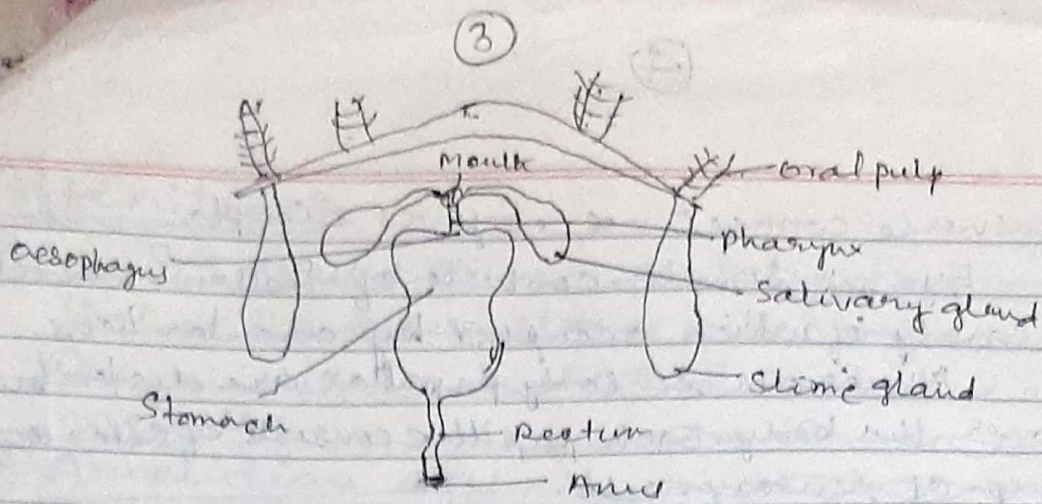 3
Mouth
oral pulp
oesophagus
pharynx
Salivary gland
Slime gland
Stomach
Rectum
Anus